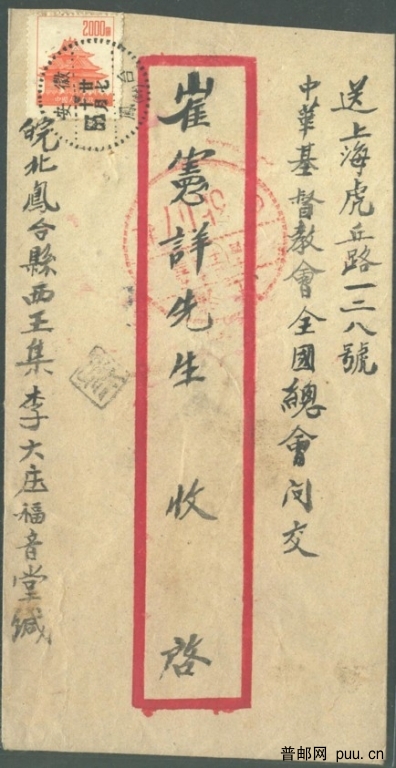 送上海虎丘路一二八號
中華基督教會全國總會問交
崔憲詳先生 收 啓
皖北鳳台縣西王集李大庄福音堂緘
2000圓
安徽
鳳台
普邮网 puu.cn